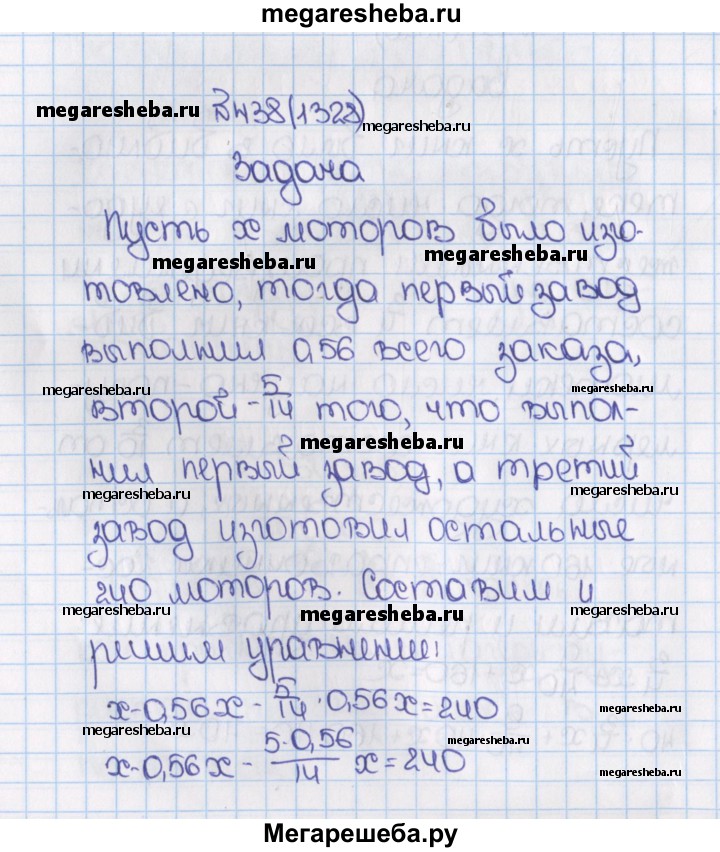 megaresheba.ru
megaresheba.ru
№38(1328)
megaresheba.ru
Задача
Пусть x моторов было изго-
megaresheba.ru
megaresheba.ru
товлено, тогда первый завод
выполнил 0,56 всего заказа,
megaresheba.ru
megaresheba.ru
второй - 5/14 того, что выпол-
megaresheba.ru
нил первый завод, а третий
megaresheba.ru
megaresheba.ru
завод изготовил остальные
240 моторов. Составим и
megaresheba.ru
megaresheba.ru
megaresheba.ru
решим уравнение:
x-0,56x - 5/14 · 0,56x = 240
megaresheba.ru
megaresheba.ru
megaresheba.ru
x-0,56x - 5·0,56/14 x = 240
megaresheba.ru
Мегарешеба.ру